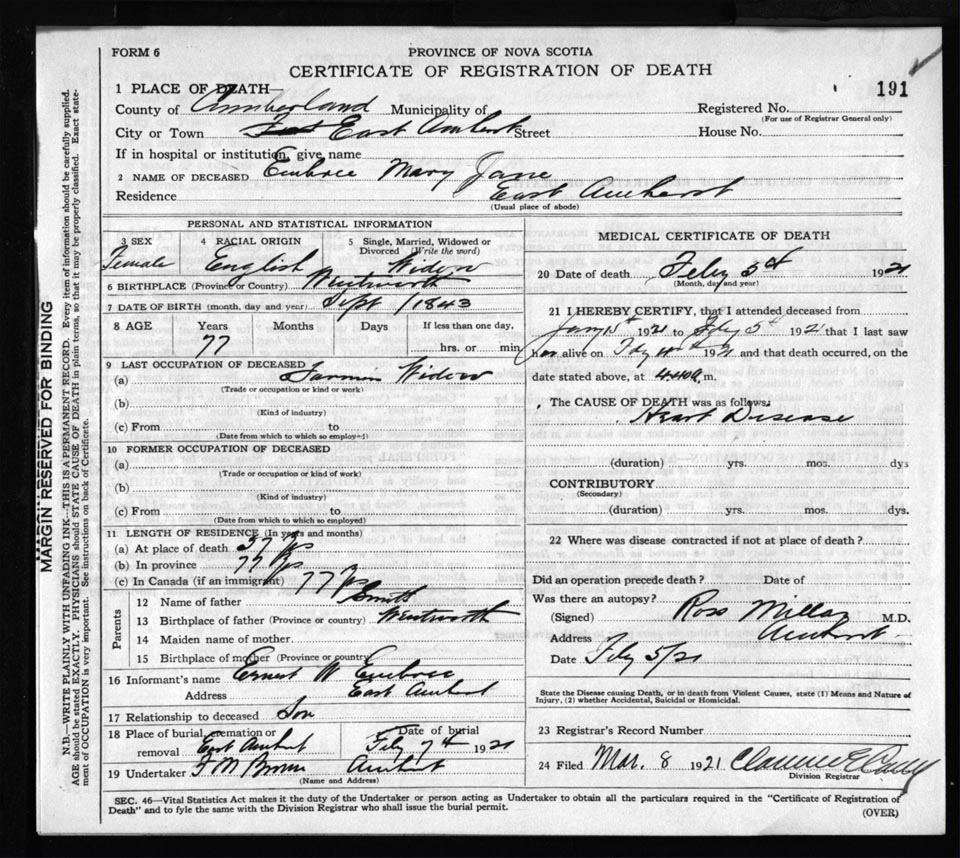 FORM 6
PROVINCE OF NOVA SCOTIA
CERTIFICATE OF REGISTRATION OF DEATH
191
1 PLACE OF DEATH—
County of Cumberland Municipality of Registered No.
(For use of Registrar General only)
City or Town East Amherst Street House No.
If in hospital or institution, give name
2 NAME OF DECEASED Embree Mary Jane
Residence East Amherst
(Usual place of abode)
PERSONAL AND STATISTICAL INFORMATION
3 SEX 4 RACIAL ORIGIN 5 Single, Married, Widowed or Divorced (Write the word)
Female English Widow
6 BIRTHPLACE (Province or Country) Wentworth
7 DATE OF BIRTH (month, day and year) Sept /1843
8 AGE Years Months Days If less than one day,
77 hrs. or min.
9 LAST OCCUPATION OF DECEASED
(a) Farmin Widow
(Trade or occupation or kind or work)
(b)
(Kind of industry)
(c) From to
(Date from which to which so employed)
10 FORMER OCCUPATION OF DECEASED
(a)
(Trade or occupation or kind of work)
(b)
(Kind of industry)
(c) From to
(Date from which to which so employed)
11 LENGTH OF RESIDENCE (In years and months)
(a) At place of death 57 yrs
(b) In province 77 yrs
(c) In Canada (if an immigrant) 77 yrs
Parents
12 Name of father Smith
13 Birthplace of father (Province or country) Wentworth
14 Maiden name of mother
15 Birthplace of mother (Province or country)
16 Informant's name Ernest W Embree
Address East Amherst
17 Relationship to deceased Son
18 Place of burial, cremation or removal East Amherst Date of burial Feby 7th 1921
19 Undertaker F M Brown Amherst
(Name and Address)
MEDICAL CERTIFICATE OF DEATH
20 Date of death Feby 5th 1921
(Month, day and year)
21 I HEREBY CERTIFY, that I attended deceased from
Jany 1st 1921 to Feby 5th 1921 that I last saw
her alive on Feby 4th 1921 and that death occurred, on the
date stated above, at m.
The CAUSE OF DEATH was as follows:
Heart Disease
(duration) yrs. mos. dys
CONTRIBUTORY
(Secondary)
(duration) yrs. mos. dys.
22 Where was disease contracted if not at place of death?
Did an operation precede death? Date of
Was there an autopsy?
(Signed) Ross Millar M.D.
Address Amherst
Date Feby 5/21
State the Disease causing Death, or in death from Violent Causes, state (1) Means and Nature of
Injury, (2) whether Accidental, Suicidal or Homicidal.
23 Registrar's Record Number
24 Filed Mar. 8 1921 Clarence E
Division Registrar
SEC. 46—Vital Statistics Act makes it the duty of the Undertaker or person acting as Undertaker to obtain all the particulars required in the "Certificate of Registration of
Death" and to fyle the same with the Division Registrar who shall issue the burial permit.
(OVER)
MARGIN RESERVED FOR BINDING
N.B.—WRITE PLAINLY WITH UNFADING INK—THIS IS A PERMANENT RECORD. Every item of information should be carefully supplied.
AGE should be stated EXACTLY. PHYSICIANS should STATE CAUSE OF DEATH in plain terms, so that it may be properly classified. Exact state-
ment of OCCUPATION is very important. See instructions on back of Certificate.